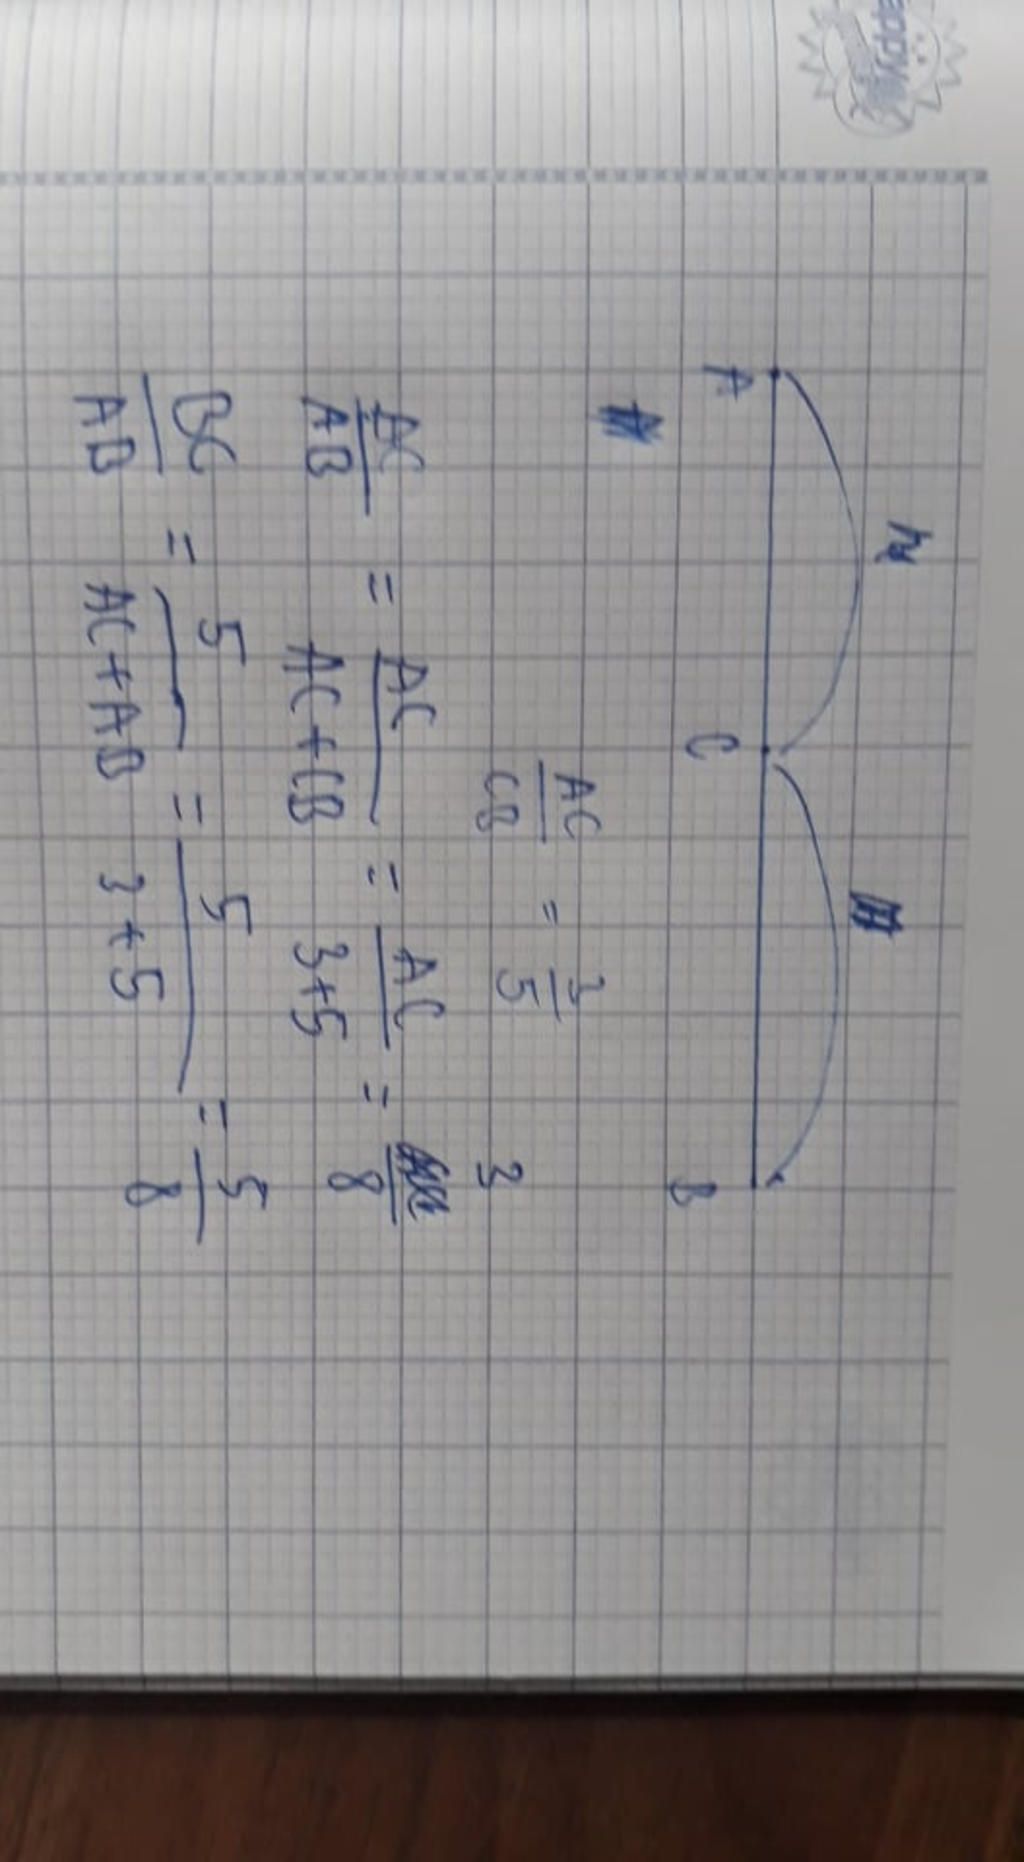 A C B
AC/CB = 3/5
AC/AB = AC/AC+CB = AC/3+5 = 3/8
BC/AB = 5/AC+AB = 5/3+5 = 5/8